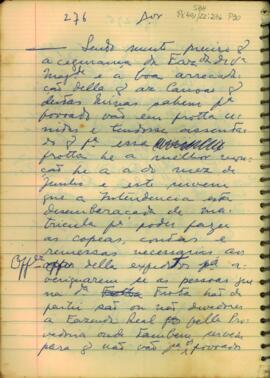 276
SBH
Px 40/22:276 P90
Sendo muito preciso q
a segurança da Fazda de S.
Magde e a boa arreca-
ção della q as Canoas q
destas Minas sahem pa
povoado vão em frotta u-
nidas e tendosse assenta-
do q pa essa
frotta he a melhor mon-
ção he a do mez de
Junho e este mesmo
que a Intendencia está
desembaracada de ma-
tricula pa poder fazer
as copeas, contas e
remessas necessarias aos
della e
averiguarem se as pessoas que
na da Frota hão de
partir são ou não devedores
a Fazenda Real pella Pro-
vedoria onde tambem
para q não vão pa o povoado